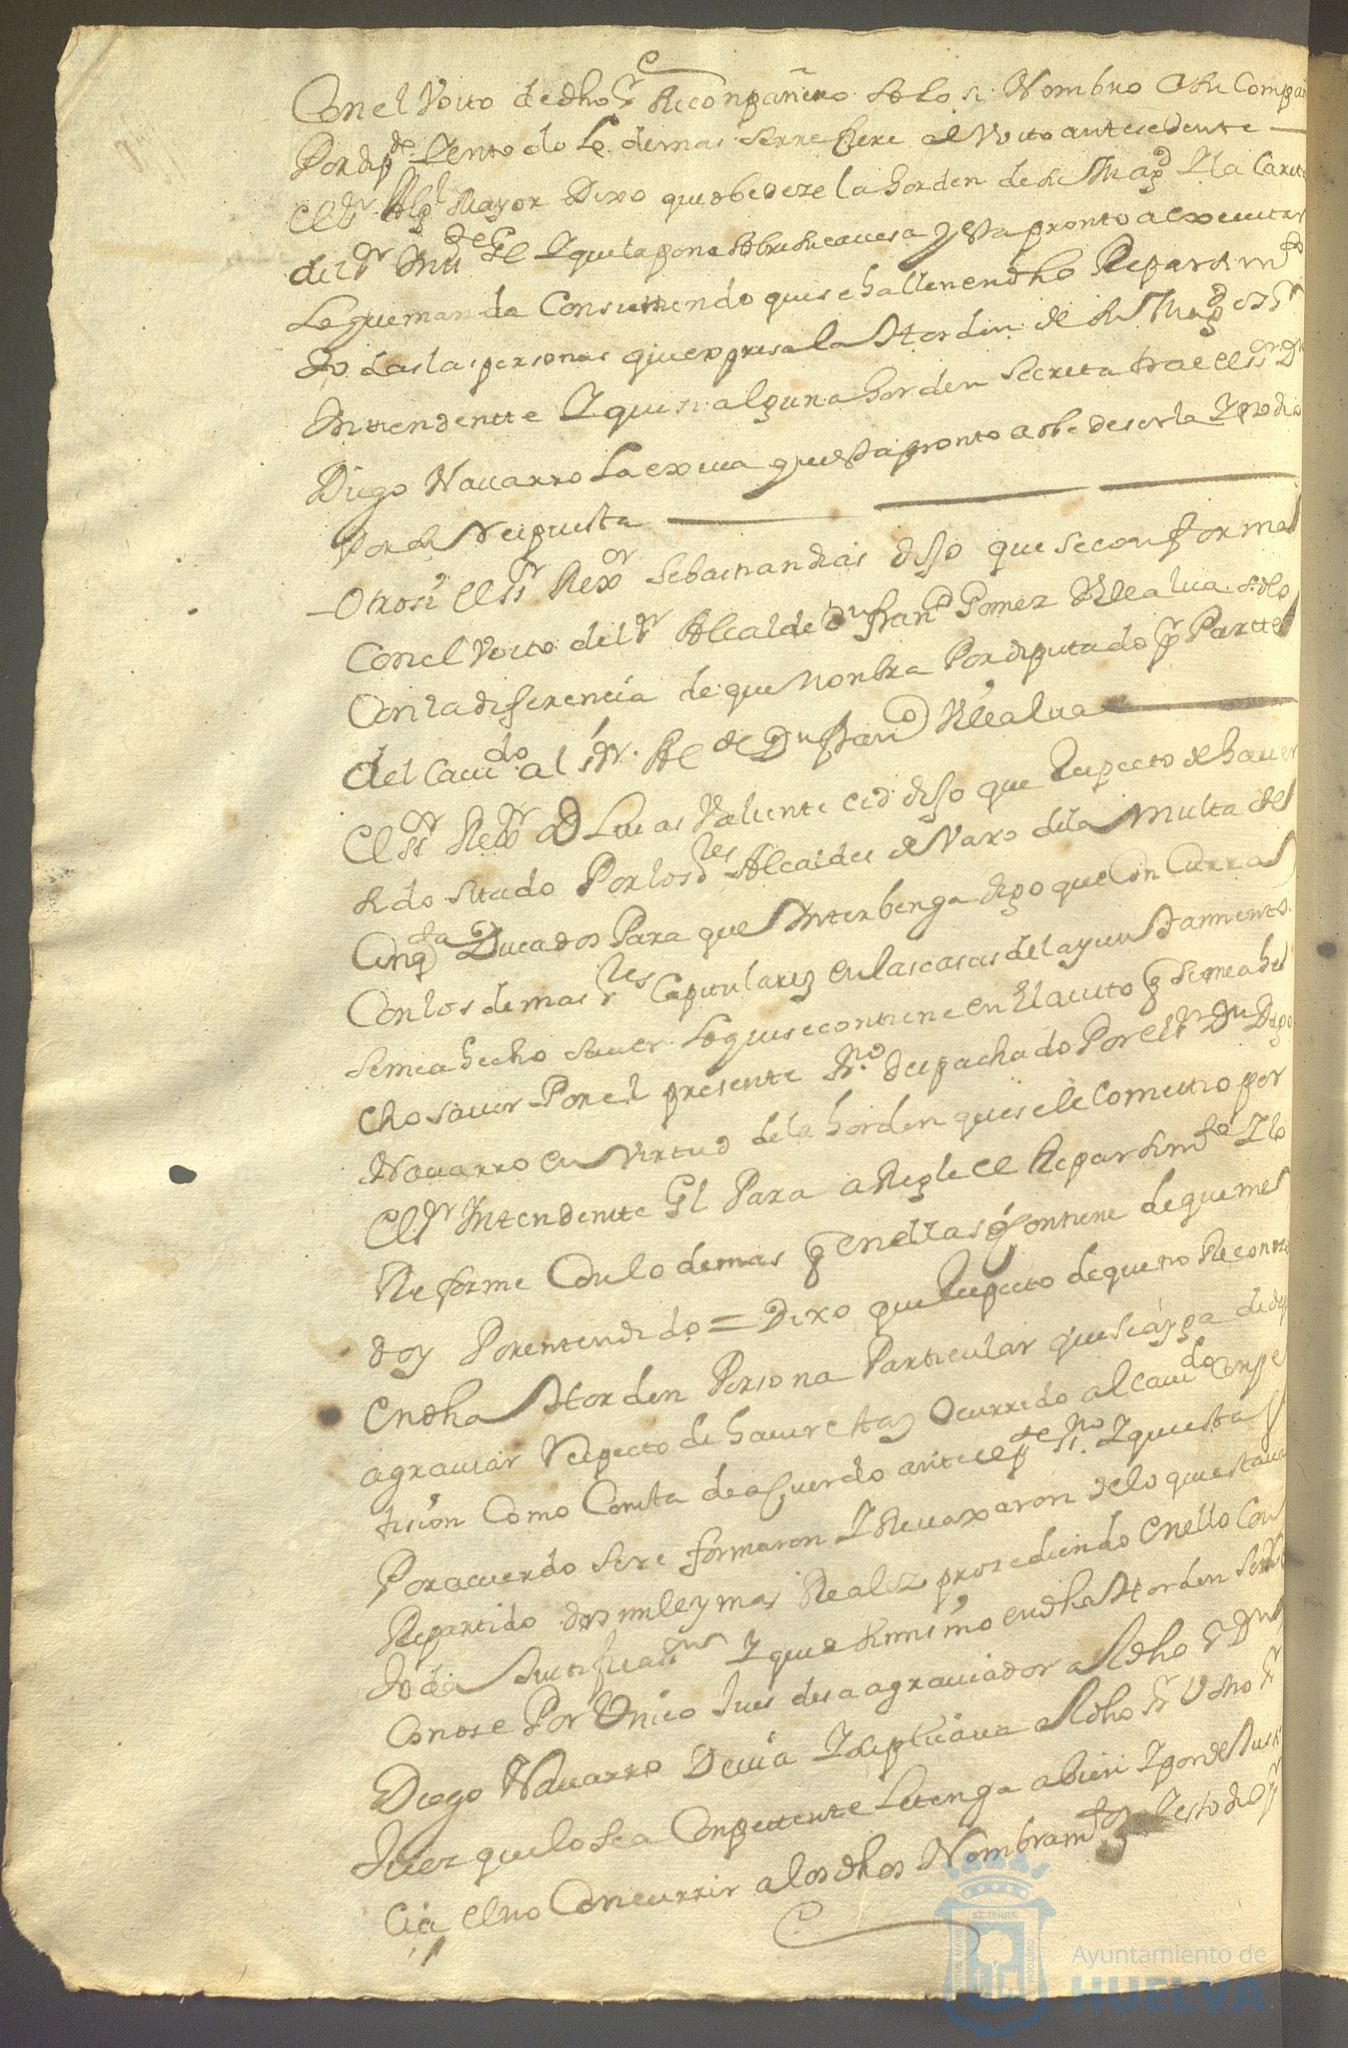 Con el Voto de dho Sr su conpañero solo si Nombro a su Compañ
Por dipdo y en todo lo demas serrefiere al Voto antesedente
El Sr Alg Mayor Dixo que obedeze la horden de su Magd y la Carta
del Sr Intte Gl y que la pone sobre su cauesa y esta pronto a executar
Lo que manda Consintiendo que se hallen en dho Repartimto
todas las personas que expresa la Horden de su Magd
Inttendentte y que si alguna horden secreta trae el Sr Dn
Diego Nauarro La exiua que esta pronto a obedeserla y dio
Por su Respuesta
Otrosi el Sr Rexor Sebastian dias dijo que se conforma
Con el Voto del Sr Alcalde Dn Franco Gomez de Alua solo
Con la diferencia de que nonbra Por diputado pr Partte
del Cauido al Sr Alde Dn Franco de Alua
El Sr Rexor D Lucas Valiente Cid dijo que Respecto de hauer
sido sitado Por los Sres Alcaldes devaxo de la Multa de
Cinqta Ducados Para que Interbenga digo que Concurra
Con los demas Sres Capitulares en las casas del ayuntamiento
se me a hecho sauer lo que se contiene en el auto q se me a he
cho sauer Por el presente Sno despachado Por el Sr Dn Diego
Nauarro en virtud de la horden que se le cometio por
El Sr Intendentte Gl Para aRegle el Repartimto y lo
Reforme Con lo demas q en ellas se contiene de que me
doy Por entendido = Dixo que Respecto de que no Reconoze
En dha Horden Persona Particular que se ayga de des
agrauiar Respecto de hauer Ocurrido al Cauido con pe
tision Como Consta de aquerdo ante el pte Sno y que esta
Por acuerdo se reformaron y Reuaxaron de lo que estaua
Repartido dos mil y mas Reales prosediendo en ello Con
toda Justificasion y que asimismo en dha Horden se
Conose Por Unico Jues desaagrauiador al dho Sr Dn
Diego Nauarro Devia y suplicaua al dho Sr U otro Sr
Juez que lo sea Conpettente Lo tenga a bien y por de Justi
cia el no Concurrir a los dhos Nombramtos y esto dio pr
Ayuntamiento de
HUELVA